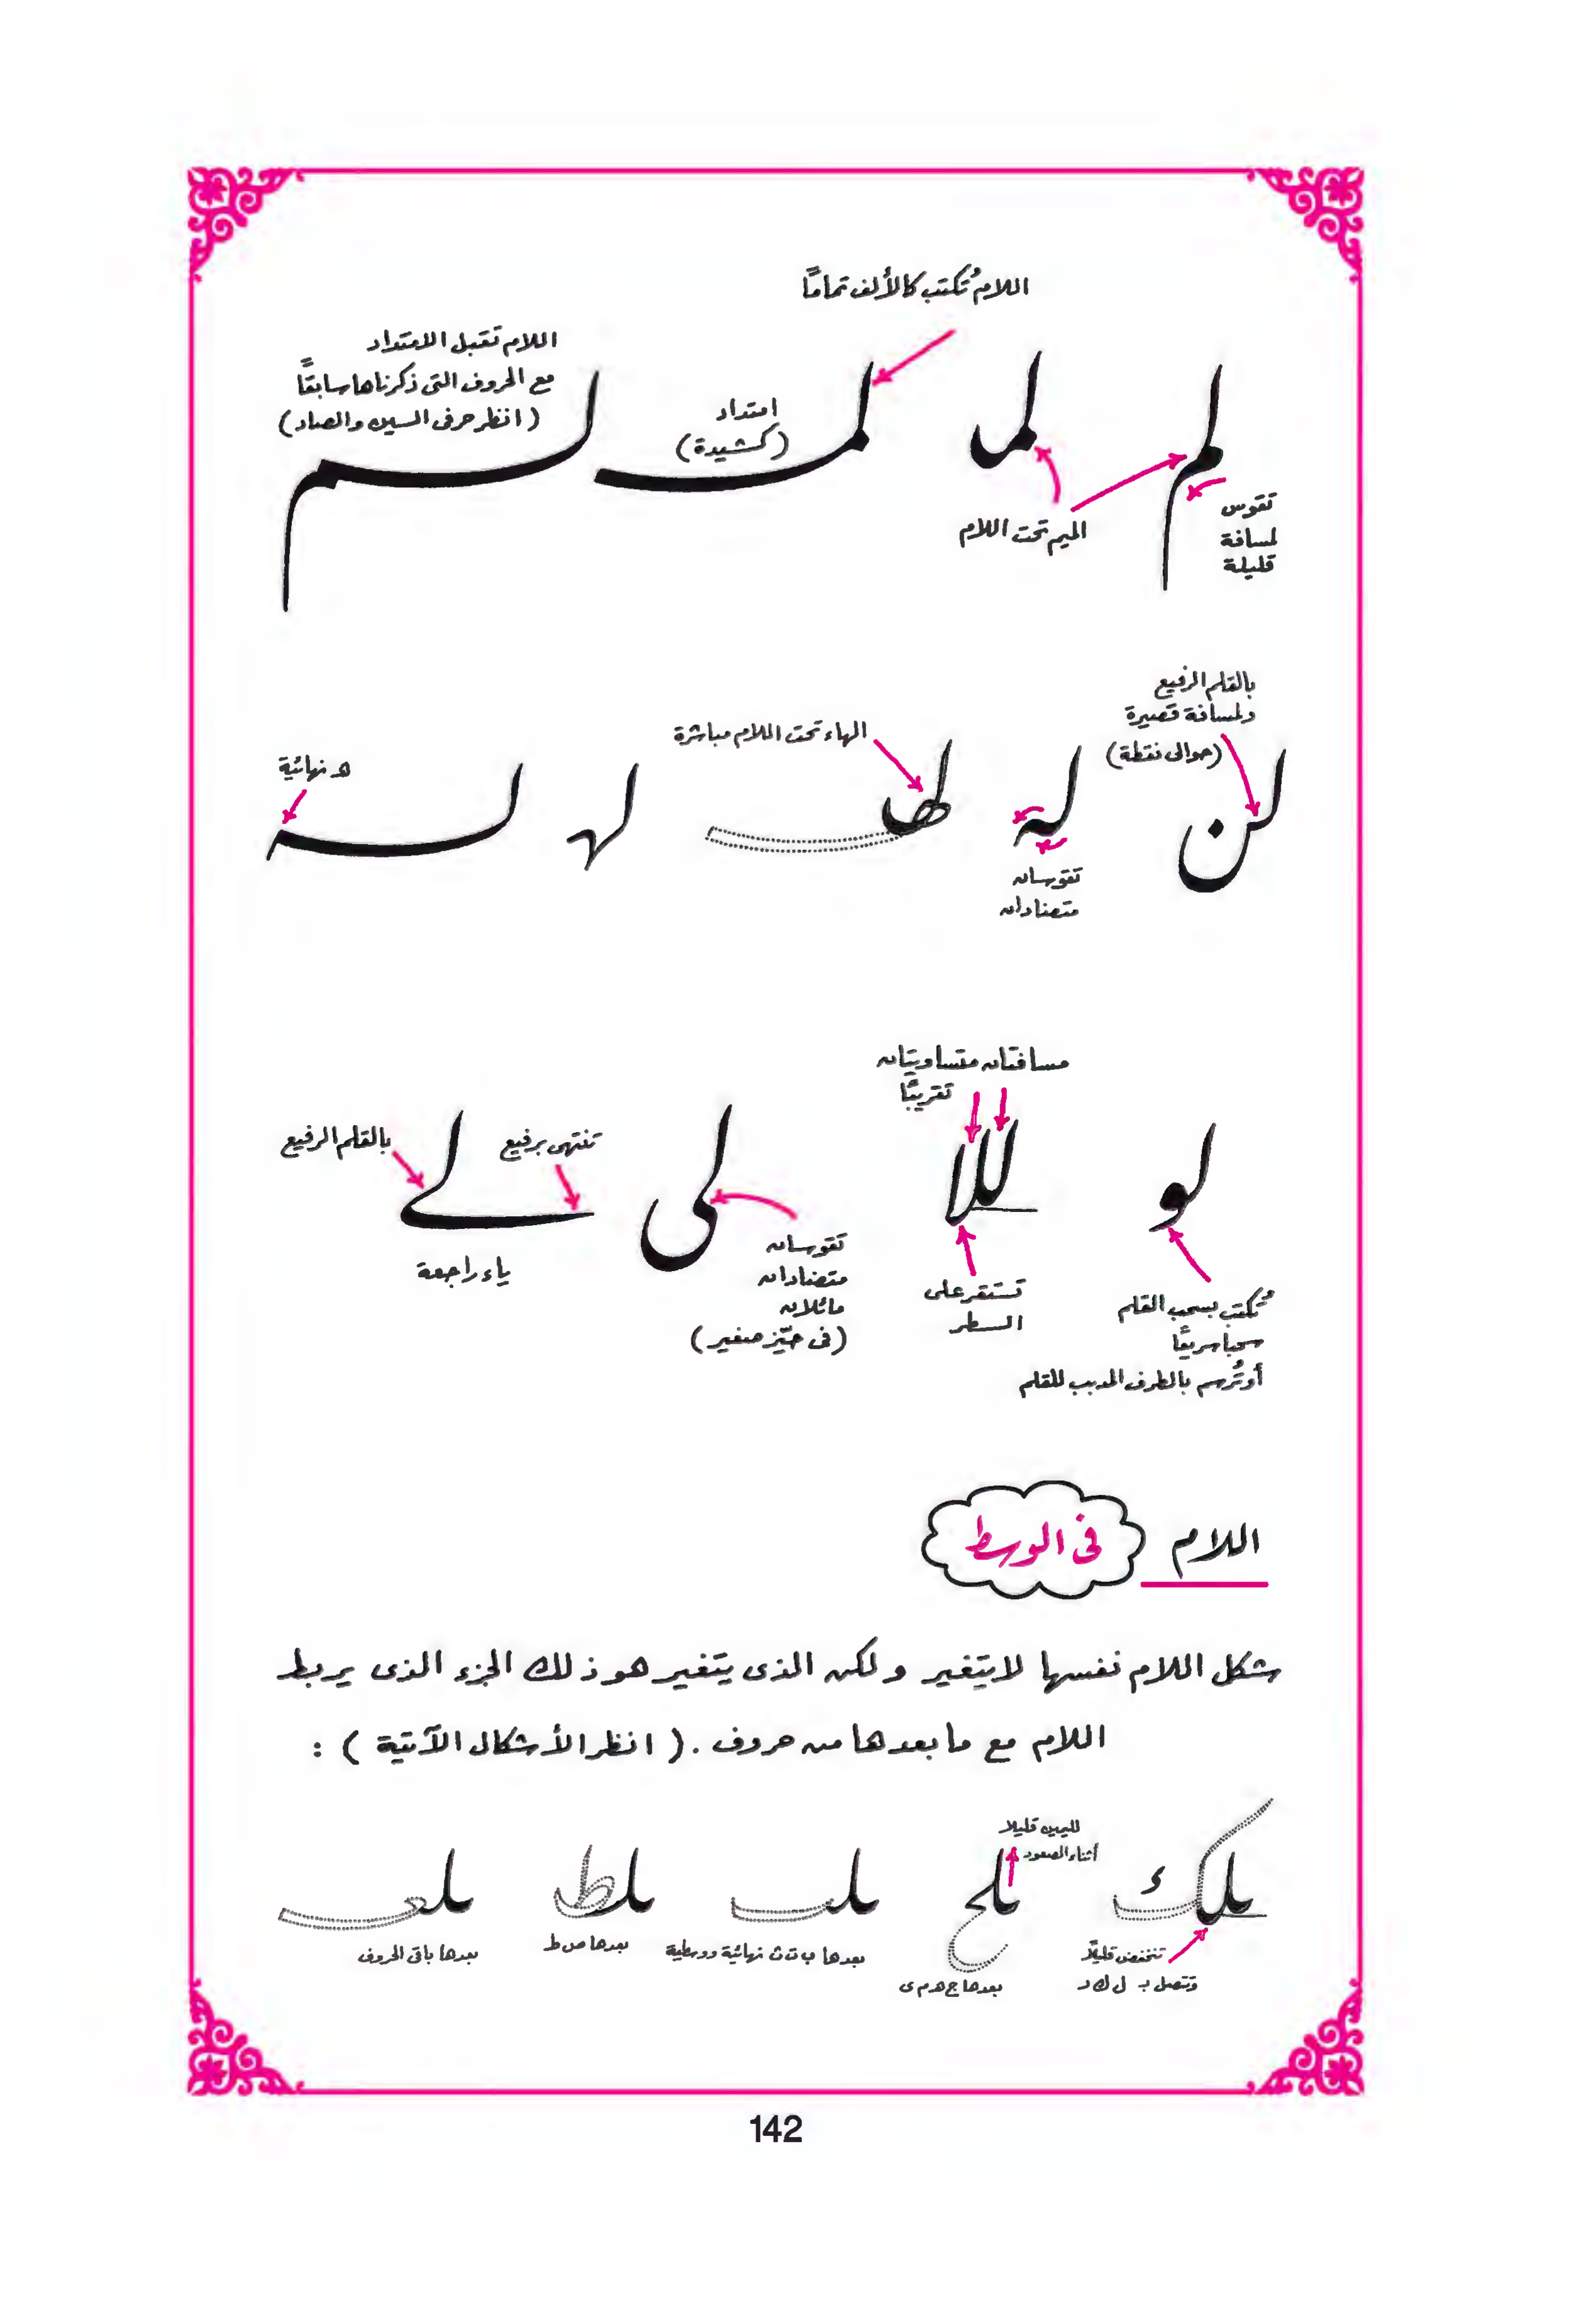 اللام تُكتب كالألف تمامًا
اللام تقبل الامتداد
مع الحروف التى ذكرناها سابقًا
(انظر حرفى السين والصاد)
امتداد
(كشيدة)
لم
لمـ
لمـ
لم
تقوس
لمسافة
قليلة
الميم تحت اللام
بالقلم الرفيع
ولمسافة قصيرة
(حوالى نقطة)
الهاء تحت اللام مباشرة
هـ نهائية
لن
له
لهـ
لهـ
له
تقوسان
متضادان
مسافتان متساويتان
تقريبًا
لو
للا
لى
لے
تنتهى برفيع
بالقلم الرفيع
ياء راجعة
تقوسان
متضادان
مائلان
(فى حيّز صغير)
تستقر على
السطر
تُكتب بسحب القلم
سحبا سريعًا
أو تُرسم بالطرف المدبب للقلم
اللام فى الوسط
شكل اللام نفسها لا يتغير ولكن الذى يتغير هو ذلك الجزء الذى يربط
اللام مع ما بعدها من حروف . ( انظر الأشكال الآتية ) :
لليمين قليلا
أثناء الصعود
ـلك
ـلح
ـلب
ـلط
تنخفض قليلًا
وتتصل بـ ل ك د
بعدها ج هـ م ى
بعدها ب ت ث نهائية ووسطية
بعدها ص ط
بعدها باقى الحروف
142